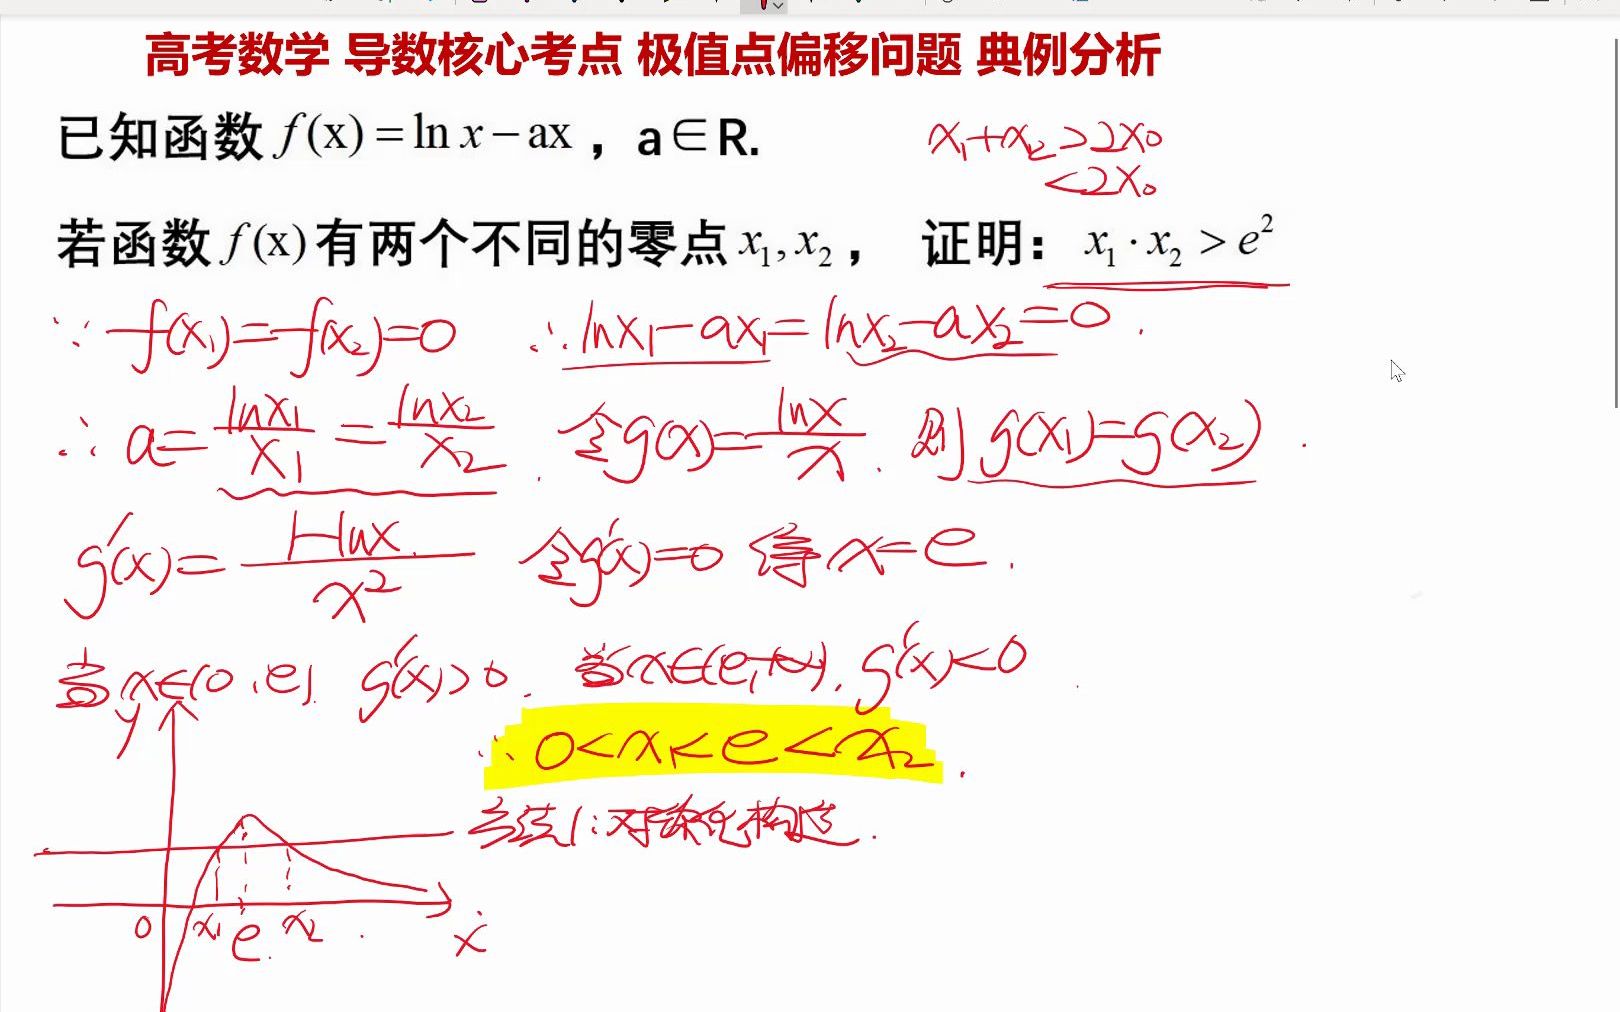 高考数学 导数核心考点 极值点偏移问题 典例分析
已知函数 f(x) = ln x − ax ，a∈R.
x₁+x₂>2x₀
<2x₀
若函数 f(x) 有两个不同的零点 x₁, x₂ ， 证明： x₁ · x₂ > e²
∵ f(x₁)=f(x₂)=0 ∴ lnx₁−ax₁=lnx₂−ax₂=0.
∴ a=lnx₁/x₁=lnx₂/x₂. 令g(x)=lnx/x. 则g(x₁)=g(x₂).
g′(x)=1−lnx/x² 令g′(x)=0 得x=e.
当x∈(0,e). g′(x)>0. 当x∈(e,+∞). g′(x)<0
∴ 0<x₁<e<x₂.
方法1:对称化构造.
y
0 x₁ e x₂ x